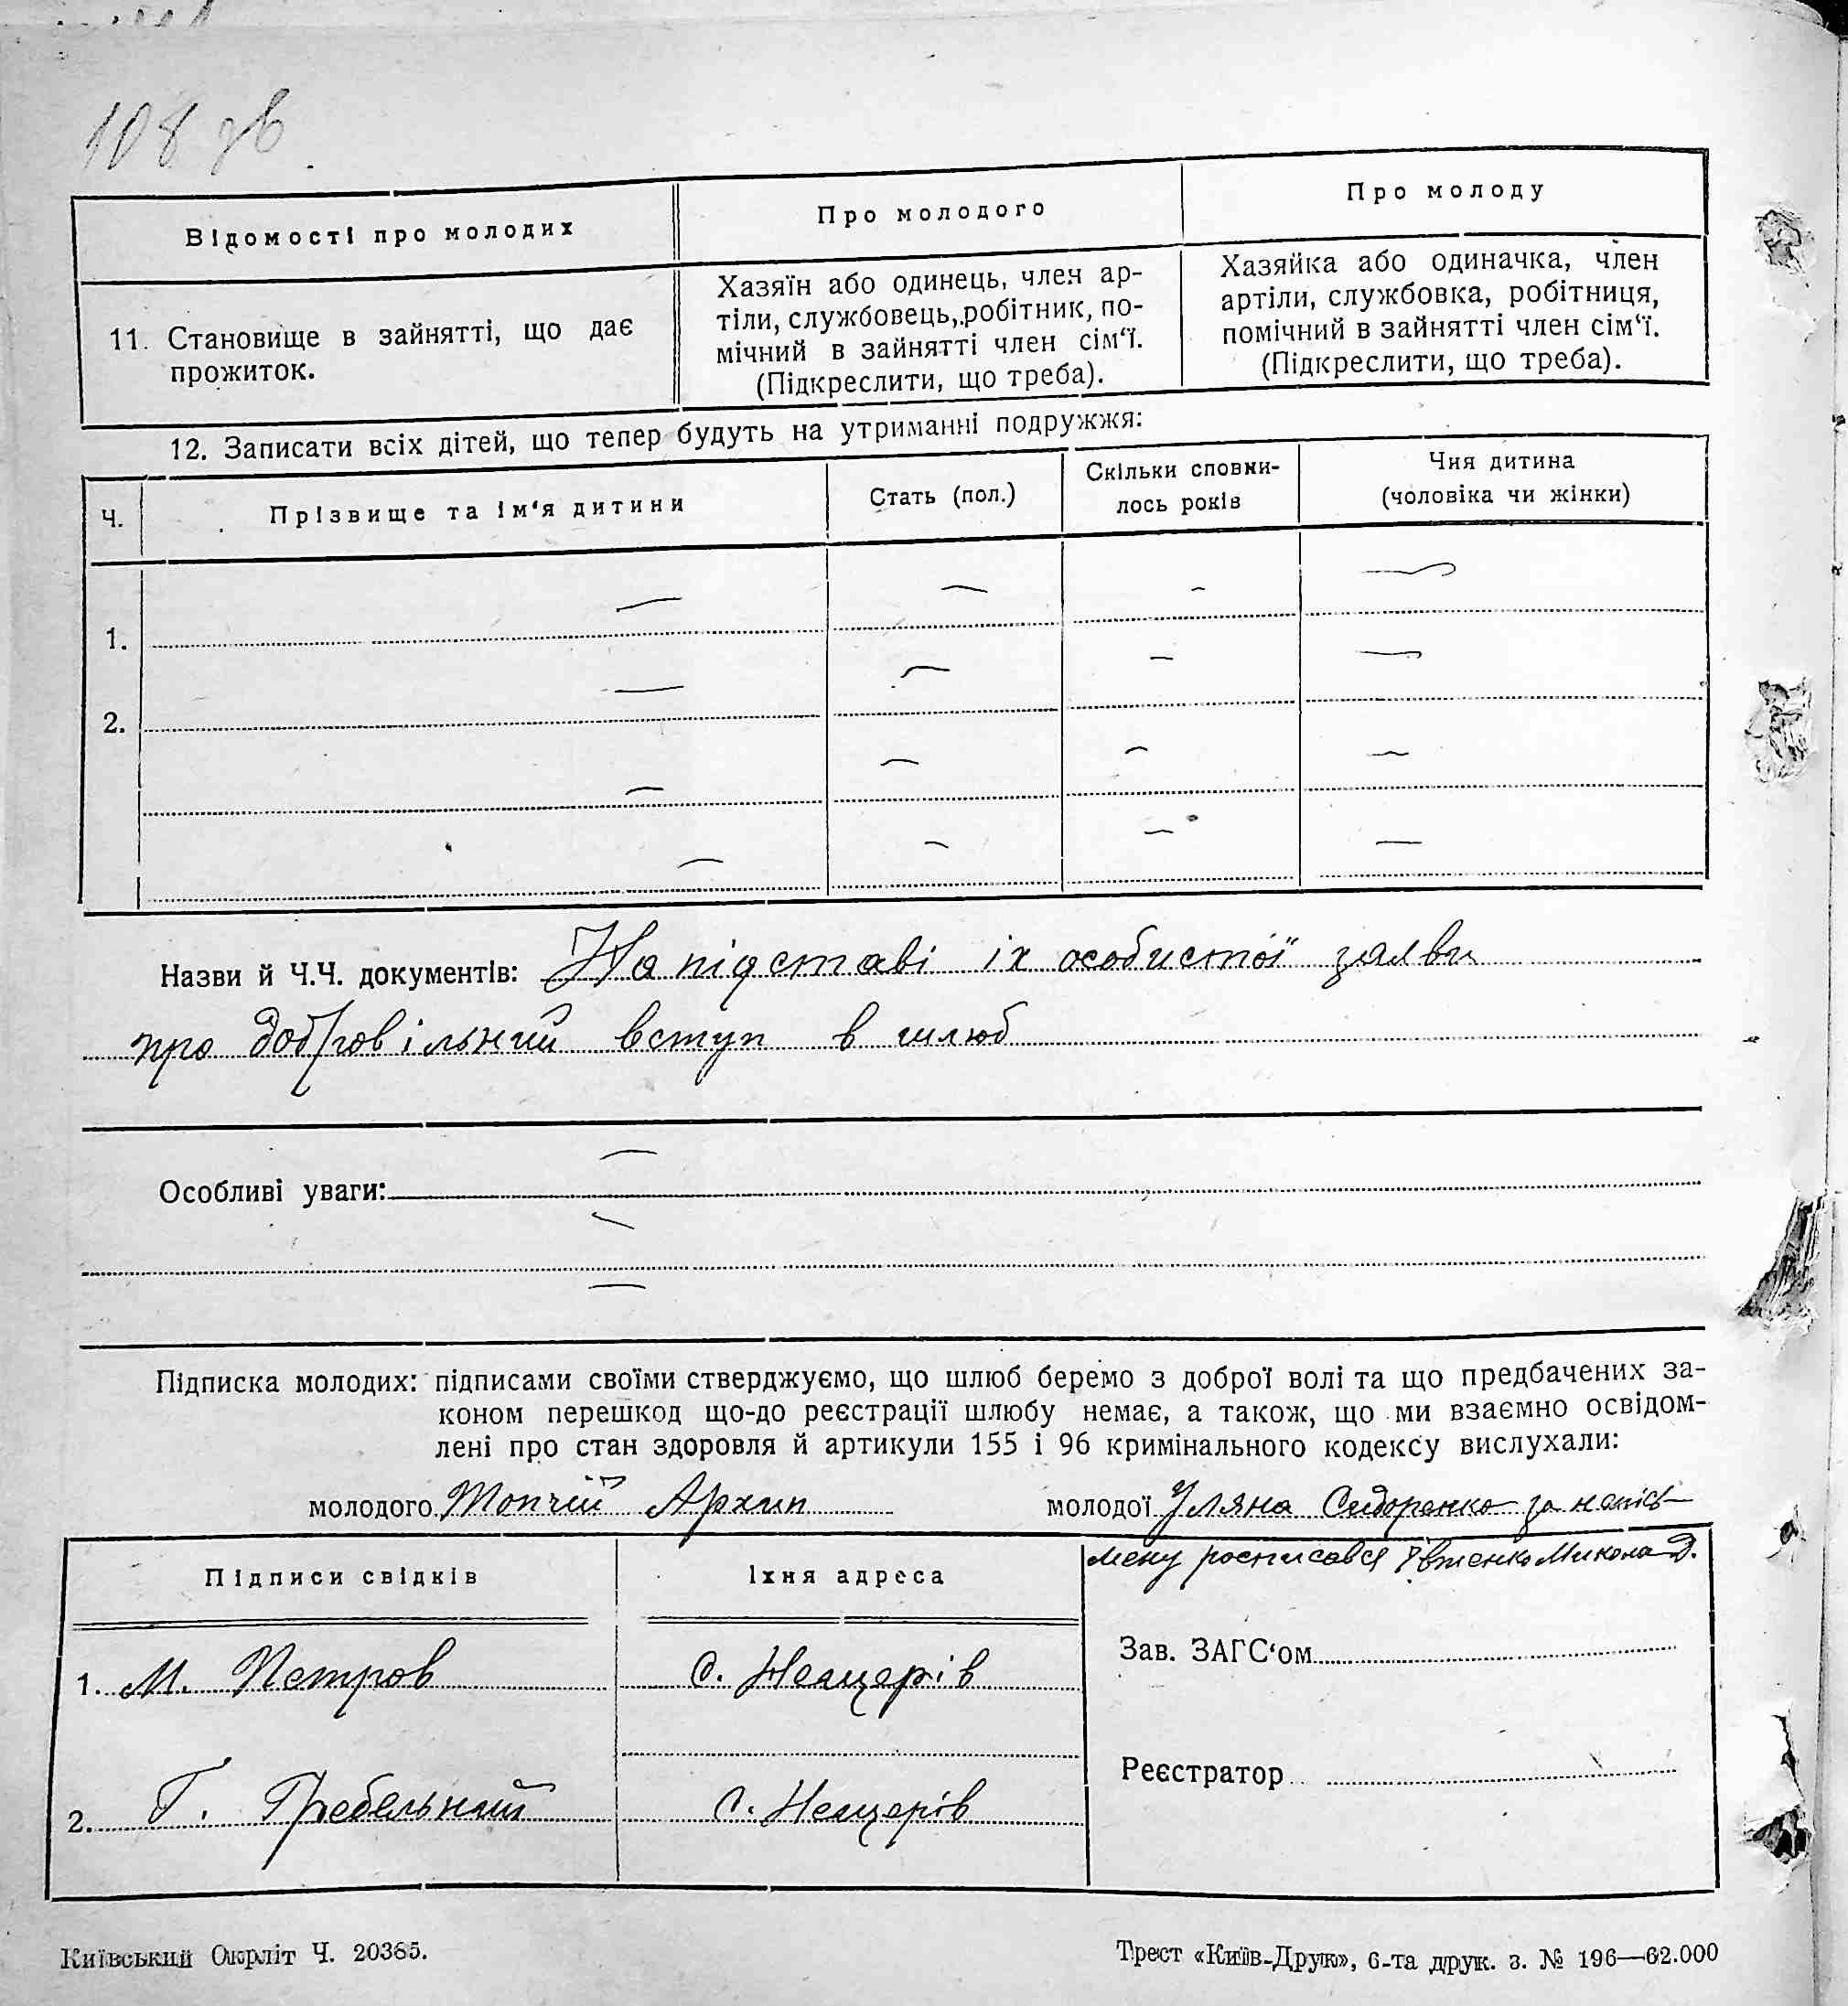 108 зв.
Відомості про молодих
Про молодого
Про молоду
11. Становище в зайнятті, що дає
прожиток.
Хазяїн або одинець, член ар-
тіли, службовець, робітник, по-
мічний в зайнятті член сім‘ї.
(Підкреслити, що треба).
Хазяйка або одиначка, член
артіли, службовка, робітниця,
помічний в зайнятті член сім‘ї.
(Підкреслити, що треба).
12. Записати всіх дітей, що тепер будуть на утриманні подружжя:
Ч.
Прізвище та ім‘я дитини
Стать (пол.)
Скільки сповни-
лось років
Чия дитина
(чоловіка чи жінки)
1.
2.
Назви й Ч.Ч. документів: На підставі іх особистої заяви
про добровільний вступ в шлюб
Особливі уваги:
Підписка молодих: підписами своїми стверджуємо, що шлюб беремо з доброї волі та що предбачених за-
коном перешкод що-до реєстрації шлюбу немає, а також, що ми взаємно освідом-
лені про стан здоровля й артикули 155 і 96 кримінального кодексу вислухали:
молодого Топчій Архип молодої Уляна Сидоренко за непись-
мену росписався Микола Д.
Підписи свідків
Їхня адреса
1. М. Петров с. Нещерів
Зав. ЗАГС‘ом
2. Г. Гребельний с. Нещерів
Реєстратор
Київський Окрліт Ч. 20365.
Трест «Київ-Друк», 6-та друк. з. № 196—62.000